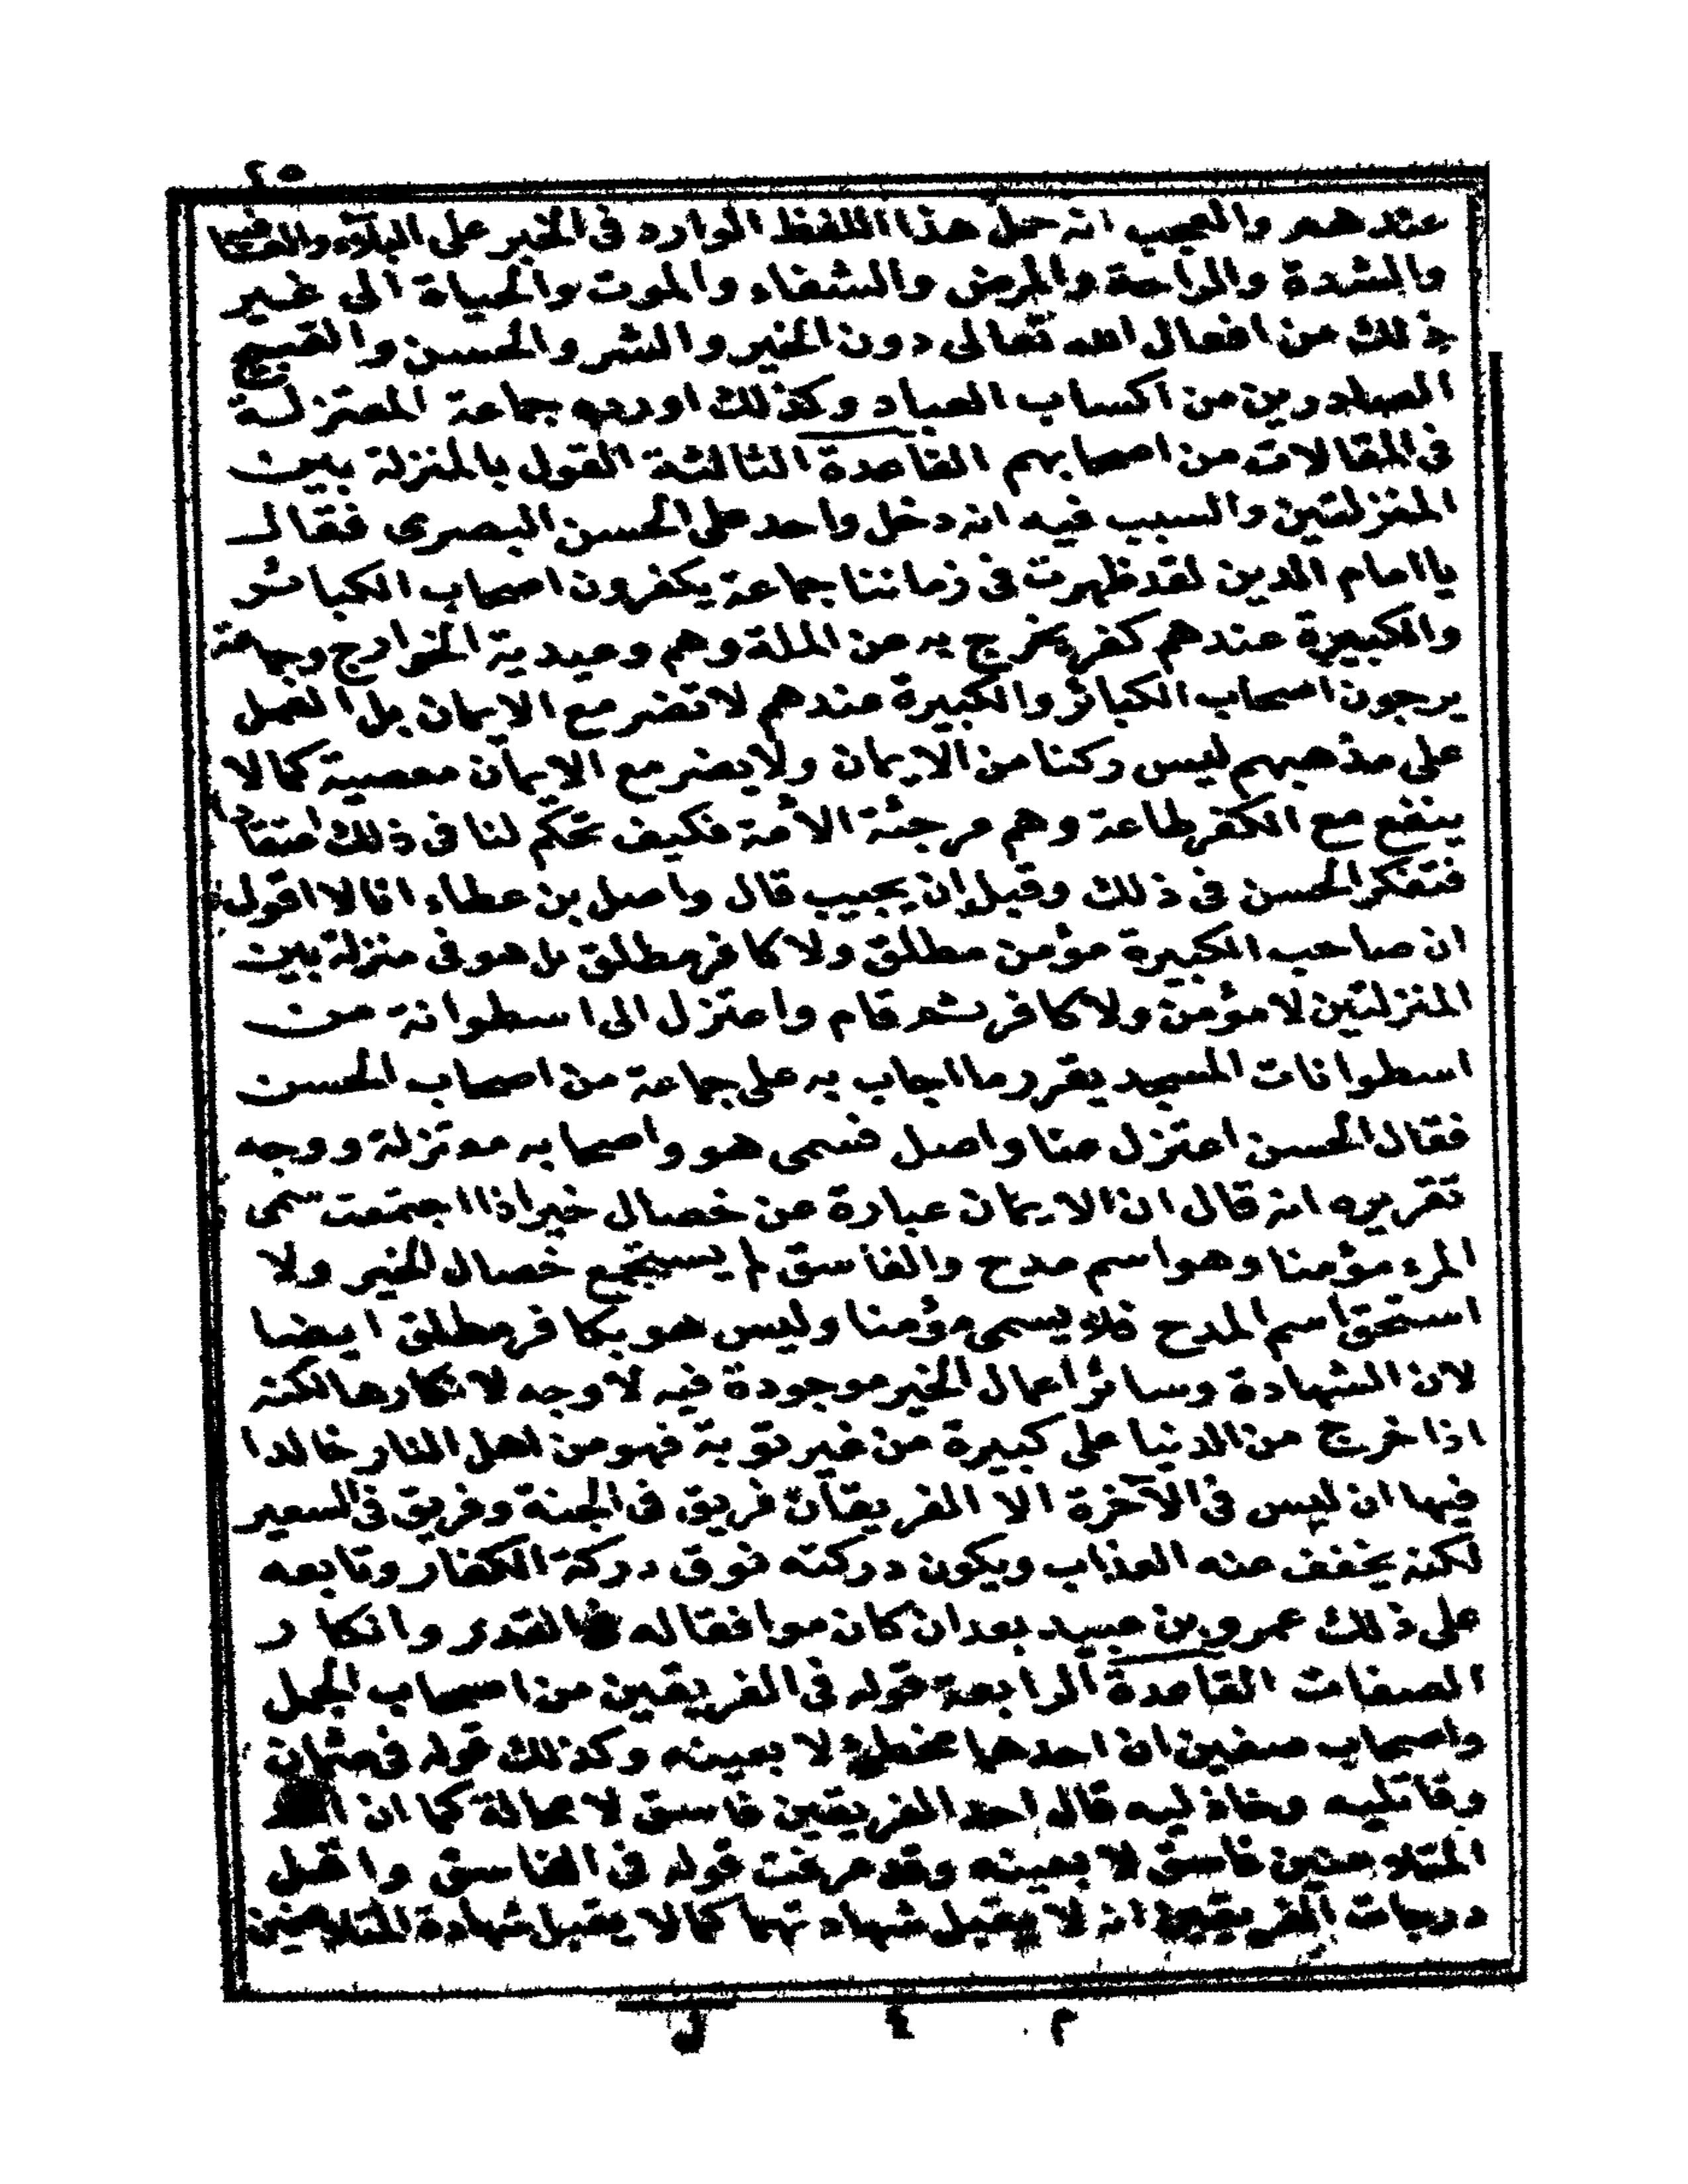 ٢٥
عندهم والعجب انه حمل هذا اللفظ الوارد فى الخبر على البلاء والعافية
والشدة والراحة والمرض والشفاء والموت والحياة الى غير
ذلك من افعال الله تعالى دون الخير والشر والحسن والقبيح
الصادرين من اكساب العباد وكذلك اورده جماعة المعتزلة
فى المقالات من اصحابهم القاعدة الثالثة القول بالمنزلة بين
المنزلتين والسبب فيه انه دخل واحد على الحسن البصرى فقال
يا امام الدين لقد ظهرت فى زماننا جماعة يكفرون اصحاب الكبائر
والكبيرة عندهم كفر يخرج به عن الملة وهم وعيدية الخوارج وجماعة
يرجون اصحاب الكبائر والكبيرة عندهم لا تضر مع الايمان بل العمل
على مذهبهم ليس ركنا من الايمان ولا يضر مع الايمان معصية كما لا
ينفع مع الكفر طاعة وهم مرجئة الأمة فكيف تحكم لنا فى ذلك اعتقادا
فتفكر الحسن فى ذلك وقبل ان يجيب قال واصل بن عطاء انا لا اقول
ان صاحب الكبيرة مؤمن مطلق ولا كافر مطلق بل هو فى منزلة بين
المنزلتين لا مؤمن ولا كافر ثم قام واعتزل الى اسطوانة من
اسطوانات المسجد يقرر ما اجاب به على جماعة من اصحاب الحسن
فقال الحسن اعتزل عنا واصل فسمى هو واصحابه معتزلة ووجه
تقريره انه قال ان الايمان عبارة عن خصال خير اذا اجتمعت سمى
المرء مؤمنا وهو اسم مدح والفاسق لم يستجمع خصال الخير ولا
استحق اسم المدح فلا يسمى مؤمنا وليس هو بكافر مطلق ايضا
لان الشهادة وسائر اعمال الخير موجودة فيه لا وجه لانكارها لكنه
اذا خرج من الدنيا على كبيرة من غير توبة فهو من اهل النار خالدا
فيها ان ليس فى الآخرة الا الفريقان فريق فى الجنة وفريق فى السعير
لكنه يخفف عنه العذاب ويكون دركته فوق دركة الكفار وتابعه
على ذلك عمرو بن عبيد بعد ان كان موافقا له القدر وانكار
الصفات القاعدة الرابعة قوله فى الفريقين من اصحاب الجمل
واصحاب صفين ان احدهما مخطئ لا بعينه وكذلك قوله فى عثمان
وقاتليه وخاذليه قال احد الفريقين فاسق لا محالة كما ان
المتلاعنين فاسق لا بعينه وقد عرفت قوله فى الفاسق واقل
درجات الفريقين انه لا يقبل شهادتهما كما لا يقبل شهادة المتلاعنين
م ٤ ل